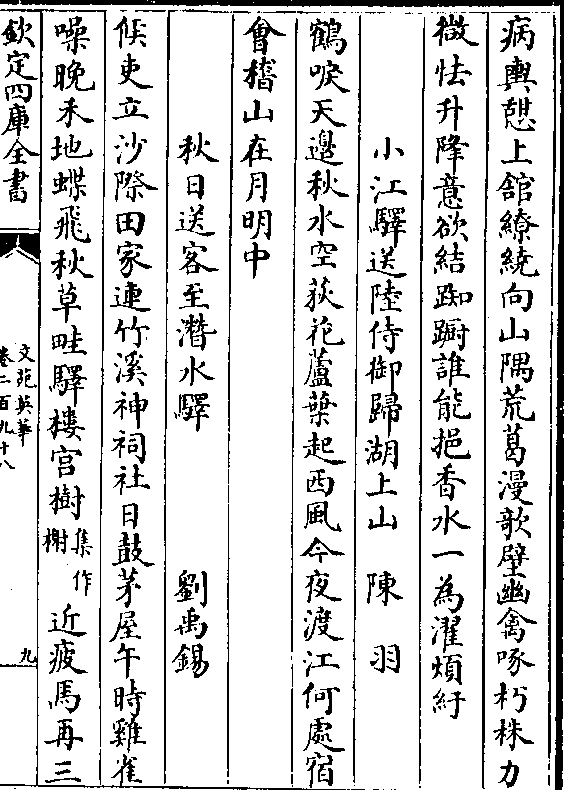 病輿憇上舘繚繞向山隅荒葛漫歌壁幽禽啄朽株力
微怯升降意欲結踟蹰誰能挹香水一為濯煩紆
小江驛送陸侍御歸湖上山 陳羽
鶴唳天邊秋水空荻花蘆葉起西風今夜渡江何處宿
會稽山在月明中
秋日送客至潛水驛 劉禹錫
候吏立沙際田家連竹溪神祠社日鼓茅屋午時雞雀
噪晚禾地蝶飛秋草畦驛樓宫樹集作榭近疲馬再三
欽定四庫全書
文苑英華
卷二百九十八
九